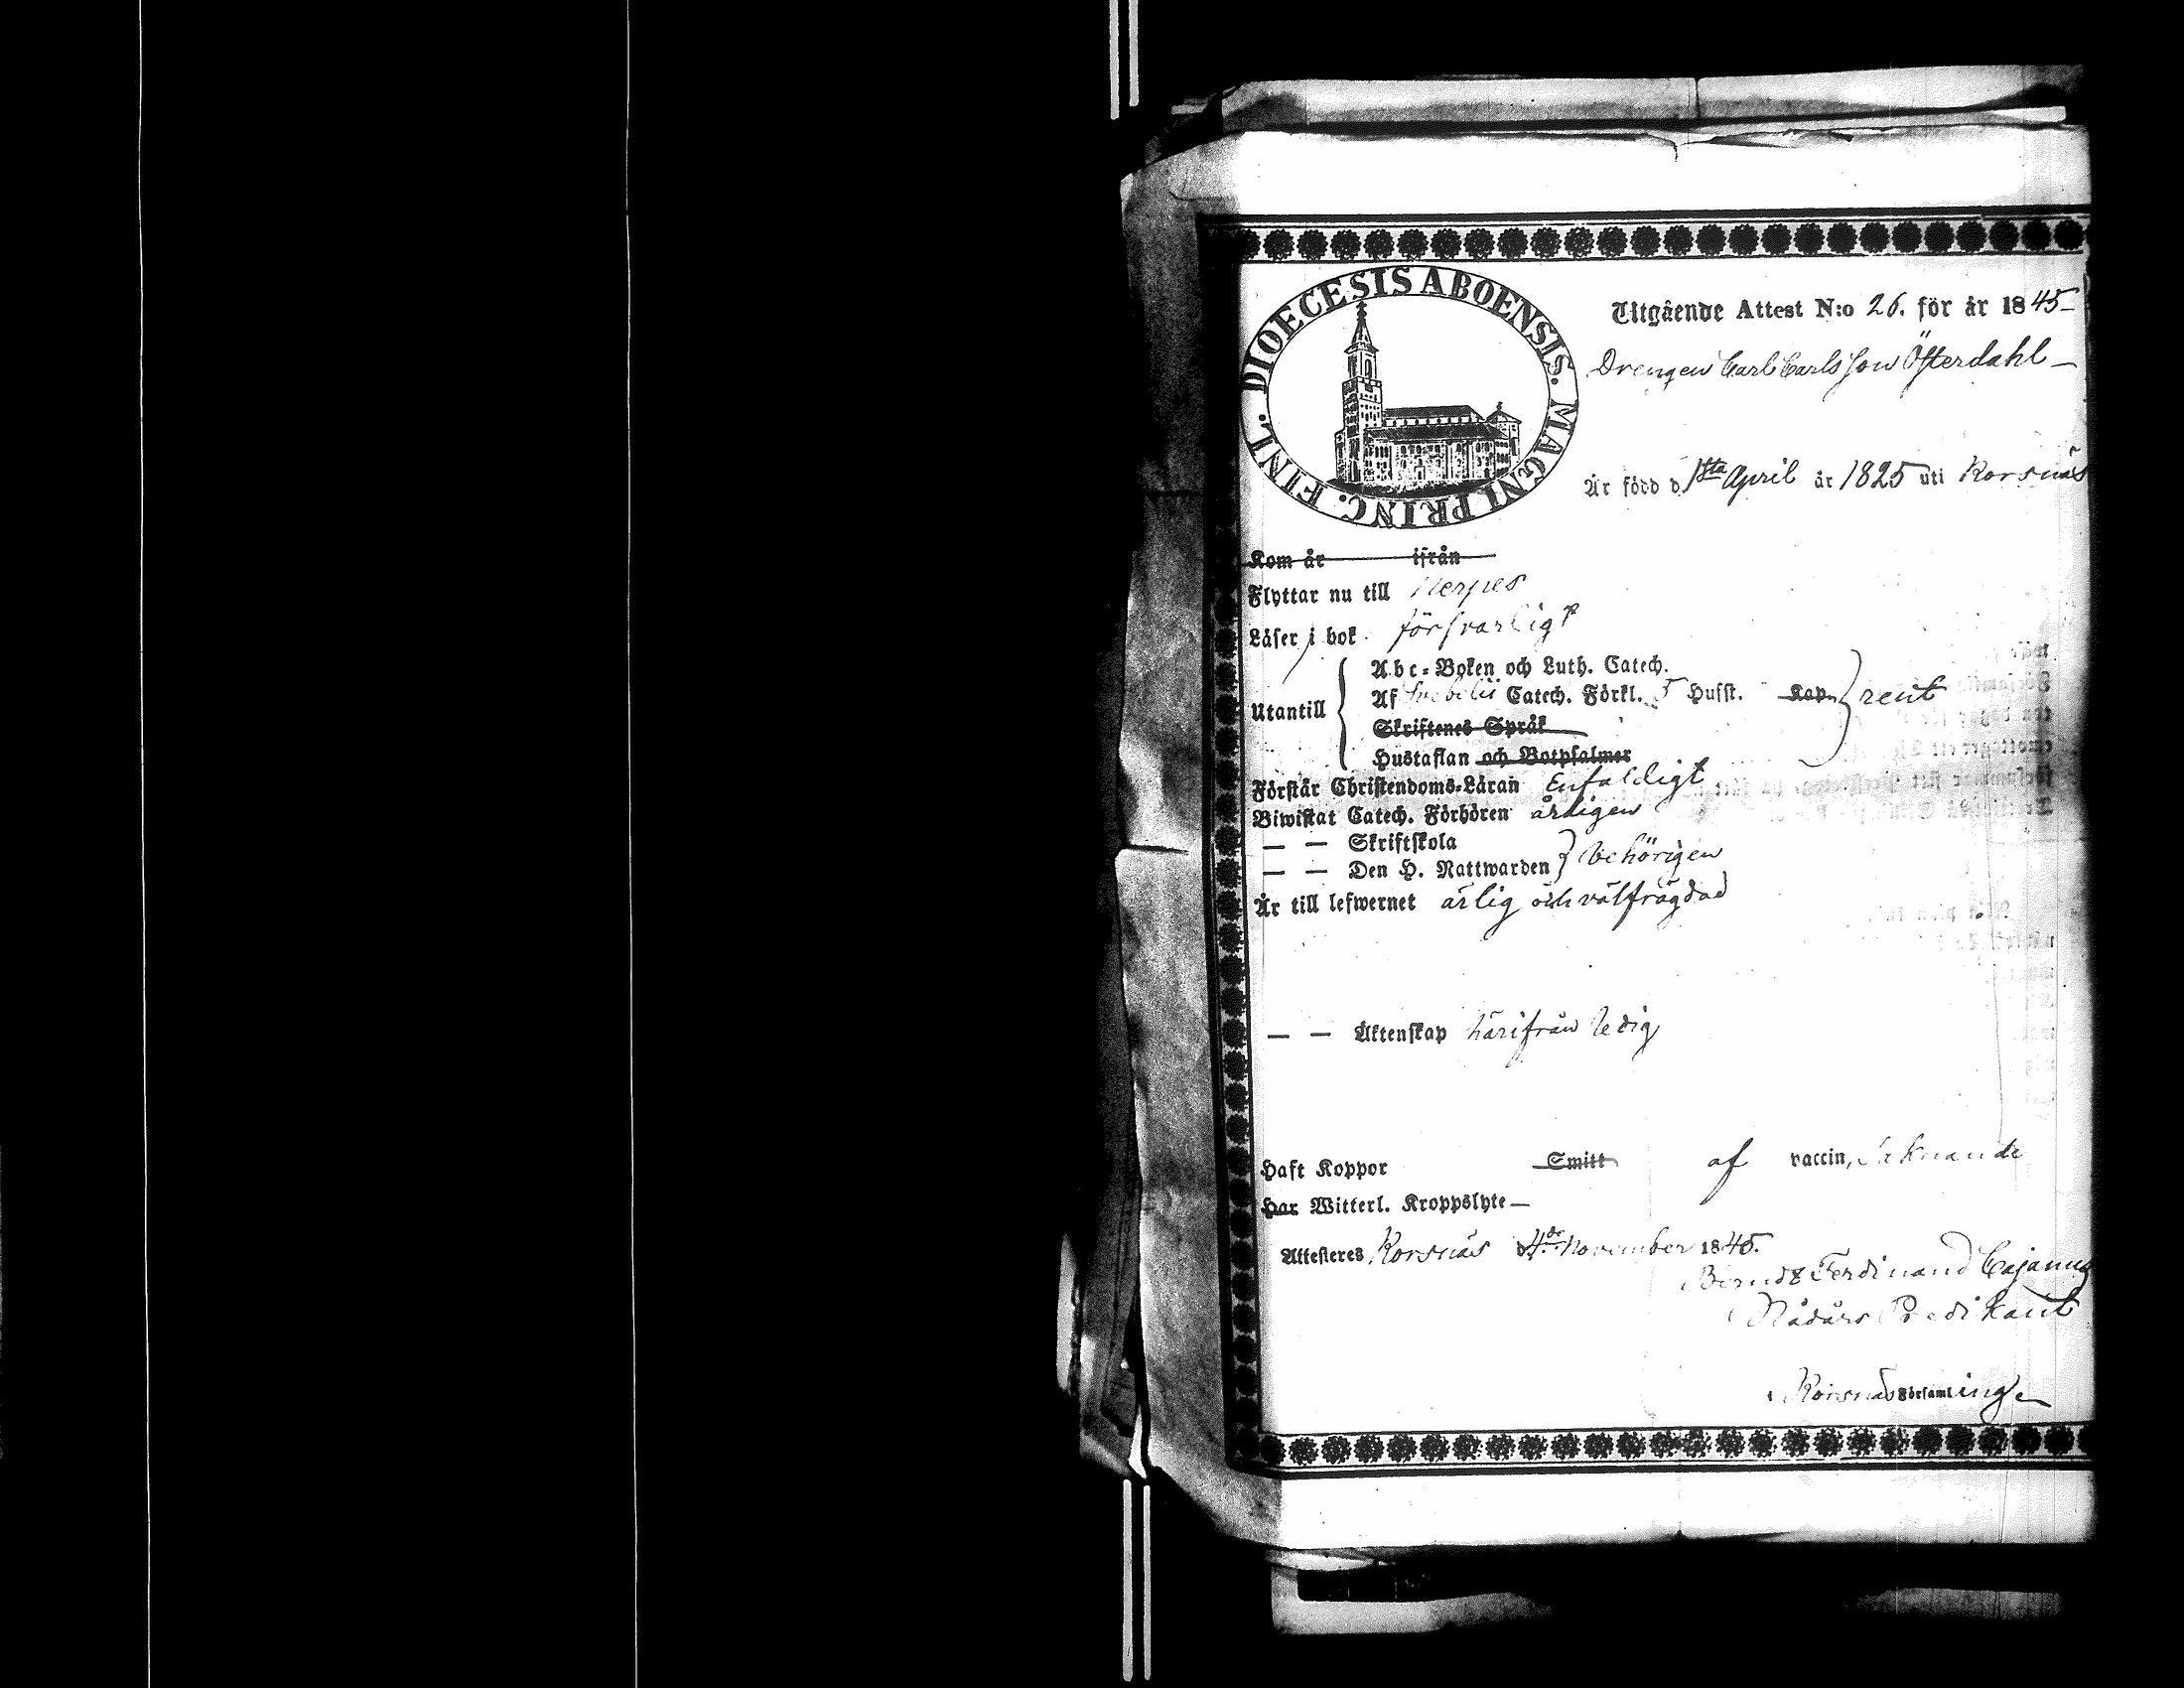 DIOECESIS ABOENSIS. MAGNI PRINC. FINL.
Utgående Attest N:o 26. för år 1845
Drengen Carl Carlsson Österdahl
Är född d. 1sta April år 1825 uti Korsnäs
Kom år ifrån
Flyttar nu till Nerpes
Läser i bok försvarligt
Utantill
Abc-Boken och Luth. Catech.
Af Svebelii Catech. Förkl. 5 Husst. Kap. rent
Skriftenes Språk
Hustaflan och Botpsalmer
Förstår Christendoms-Läran Enfaldigt
Biwistat Catech. Förhören årligen
— — Skriftskola
— — Den H. Nattwarden behörigen
Är till lefwernet ärlig och välfrägdad
— — Äktenskap härifrån ledig
Haft Koppor Smitt af vaccin, saknande
Har Witterl. Kroppslyte —
Attesteras Korsnäs d. 4de November 1845.
Berndt Ferdinand Cajanus
Nådårs Predikant
i Korsnäs Församling